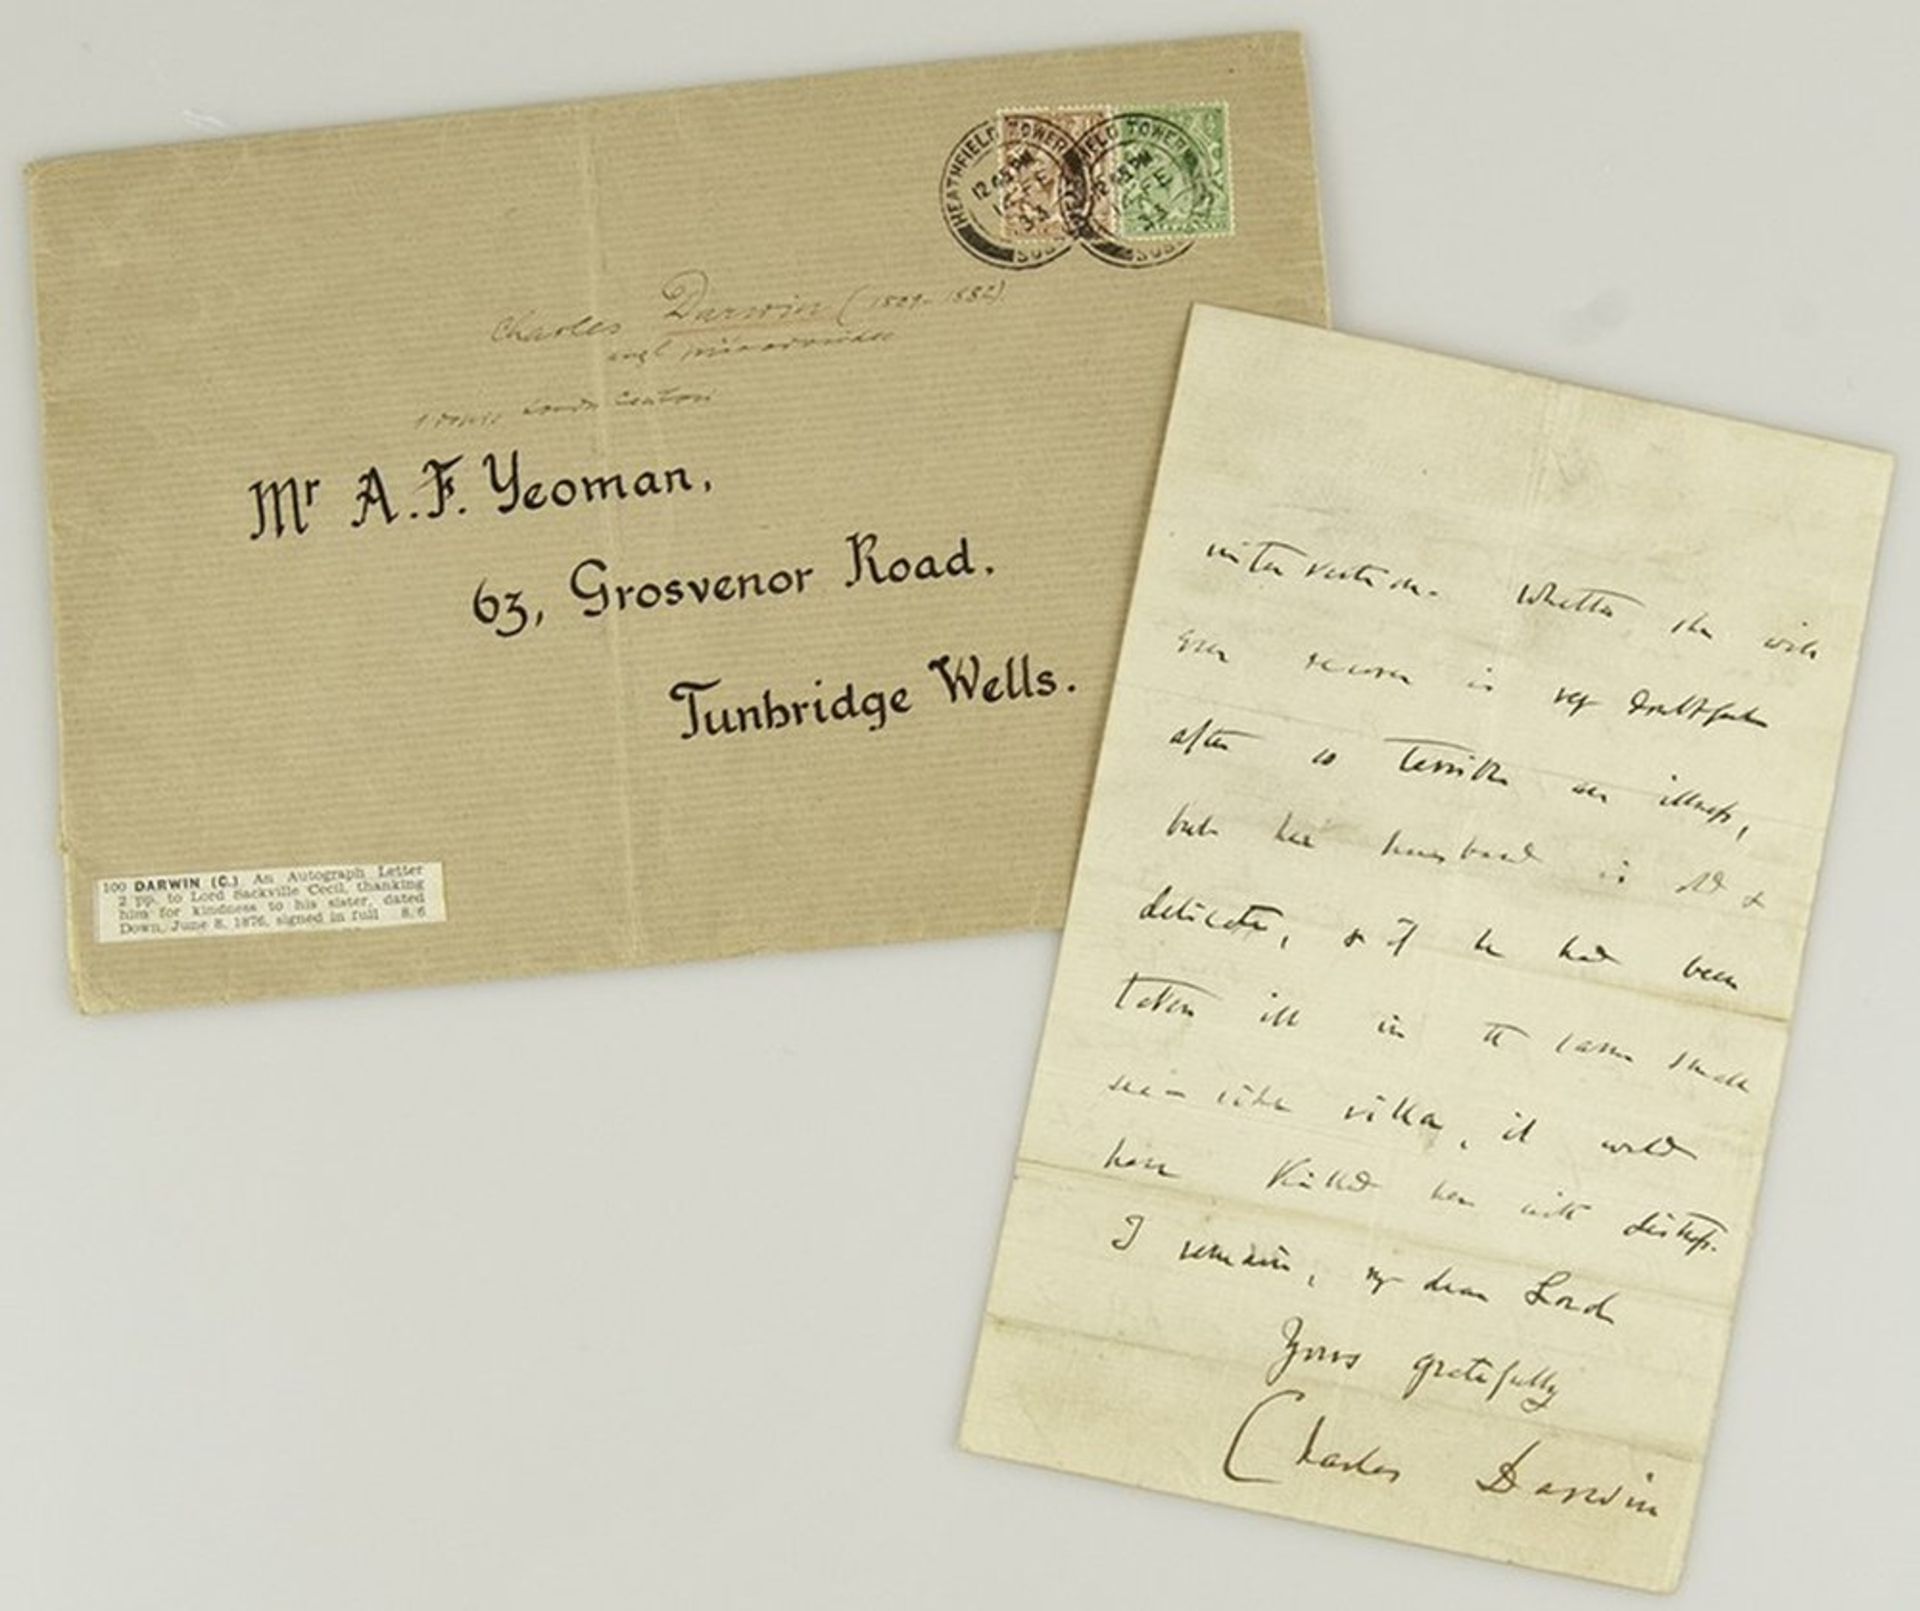 HEATHFIELD TOWER
12 45 PM
FE
33
SUS
FIELD TOWER
FE
33
SUS
Charles Darwin (1809-1882)
Mr A. F. Yeoman,
63, Grosvenor Road.
Tunbridge Wells.
100 DARWIN (C.) An Autograph Letter
2 pp. to Lord Sackville Cecil, thanking
him for kindness to his sister, dated
Down, June 8, 1876, signed in full 8/6
intervention. Whether she will
ever recover is very doubtful
after so terrible an illness,
but her husband is old &
delicate, & if he had been
taken ill in the same small
sea-side villa, it would
have killed her with distress.
I remain, my dear Lord
Yours gratefully
Charles Darwin